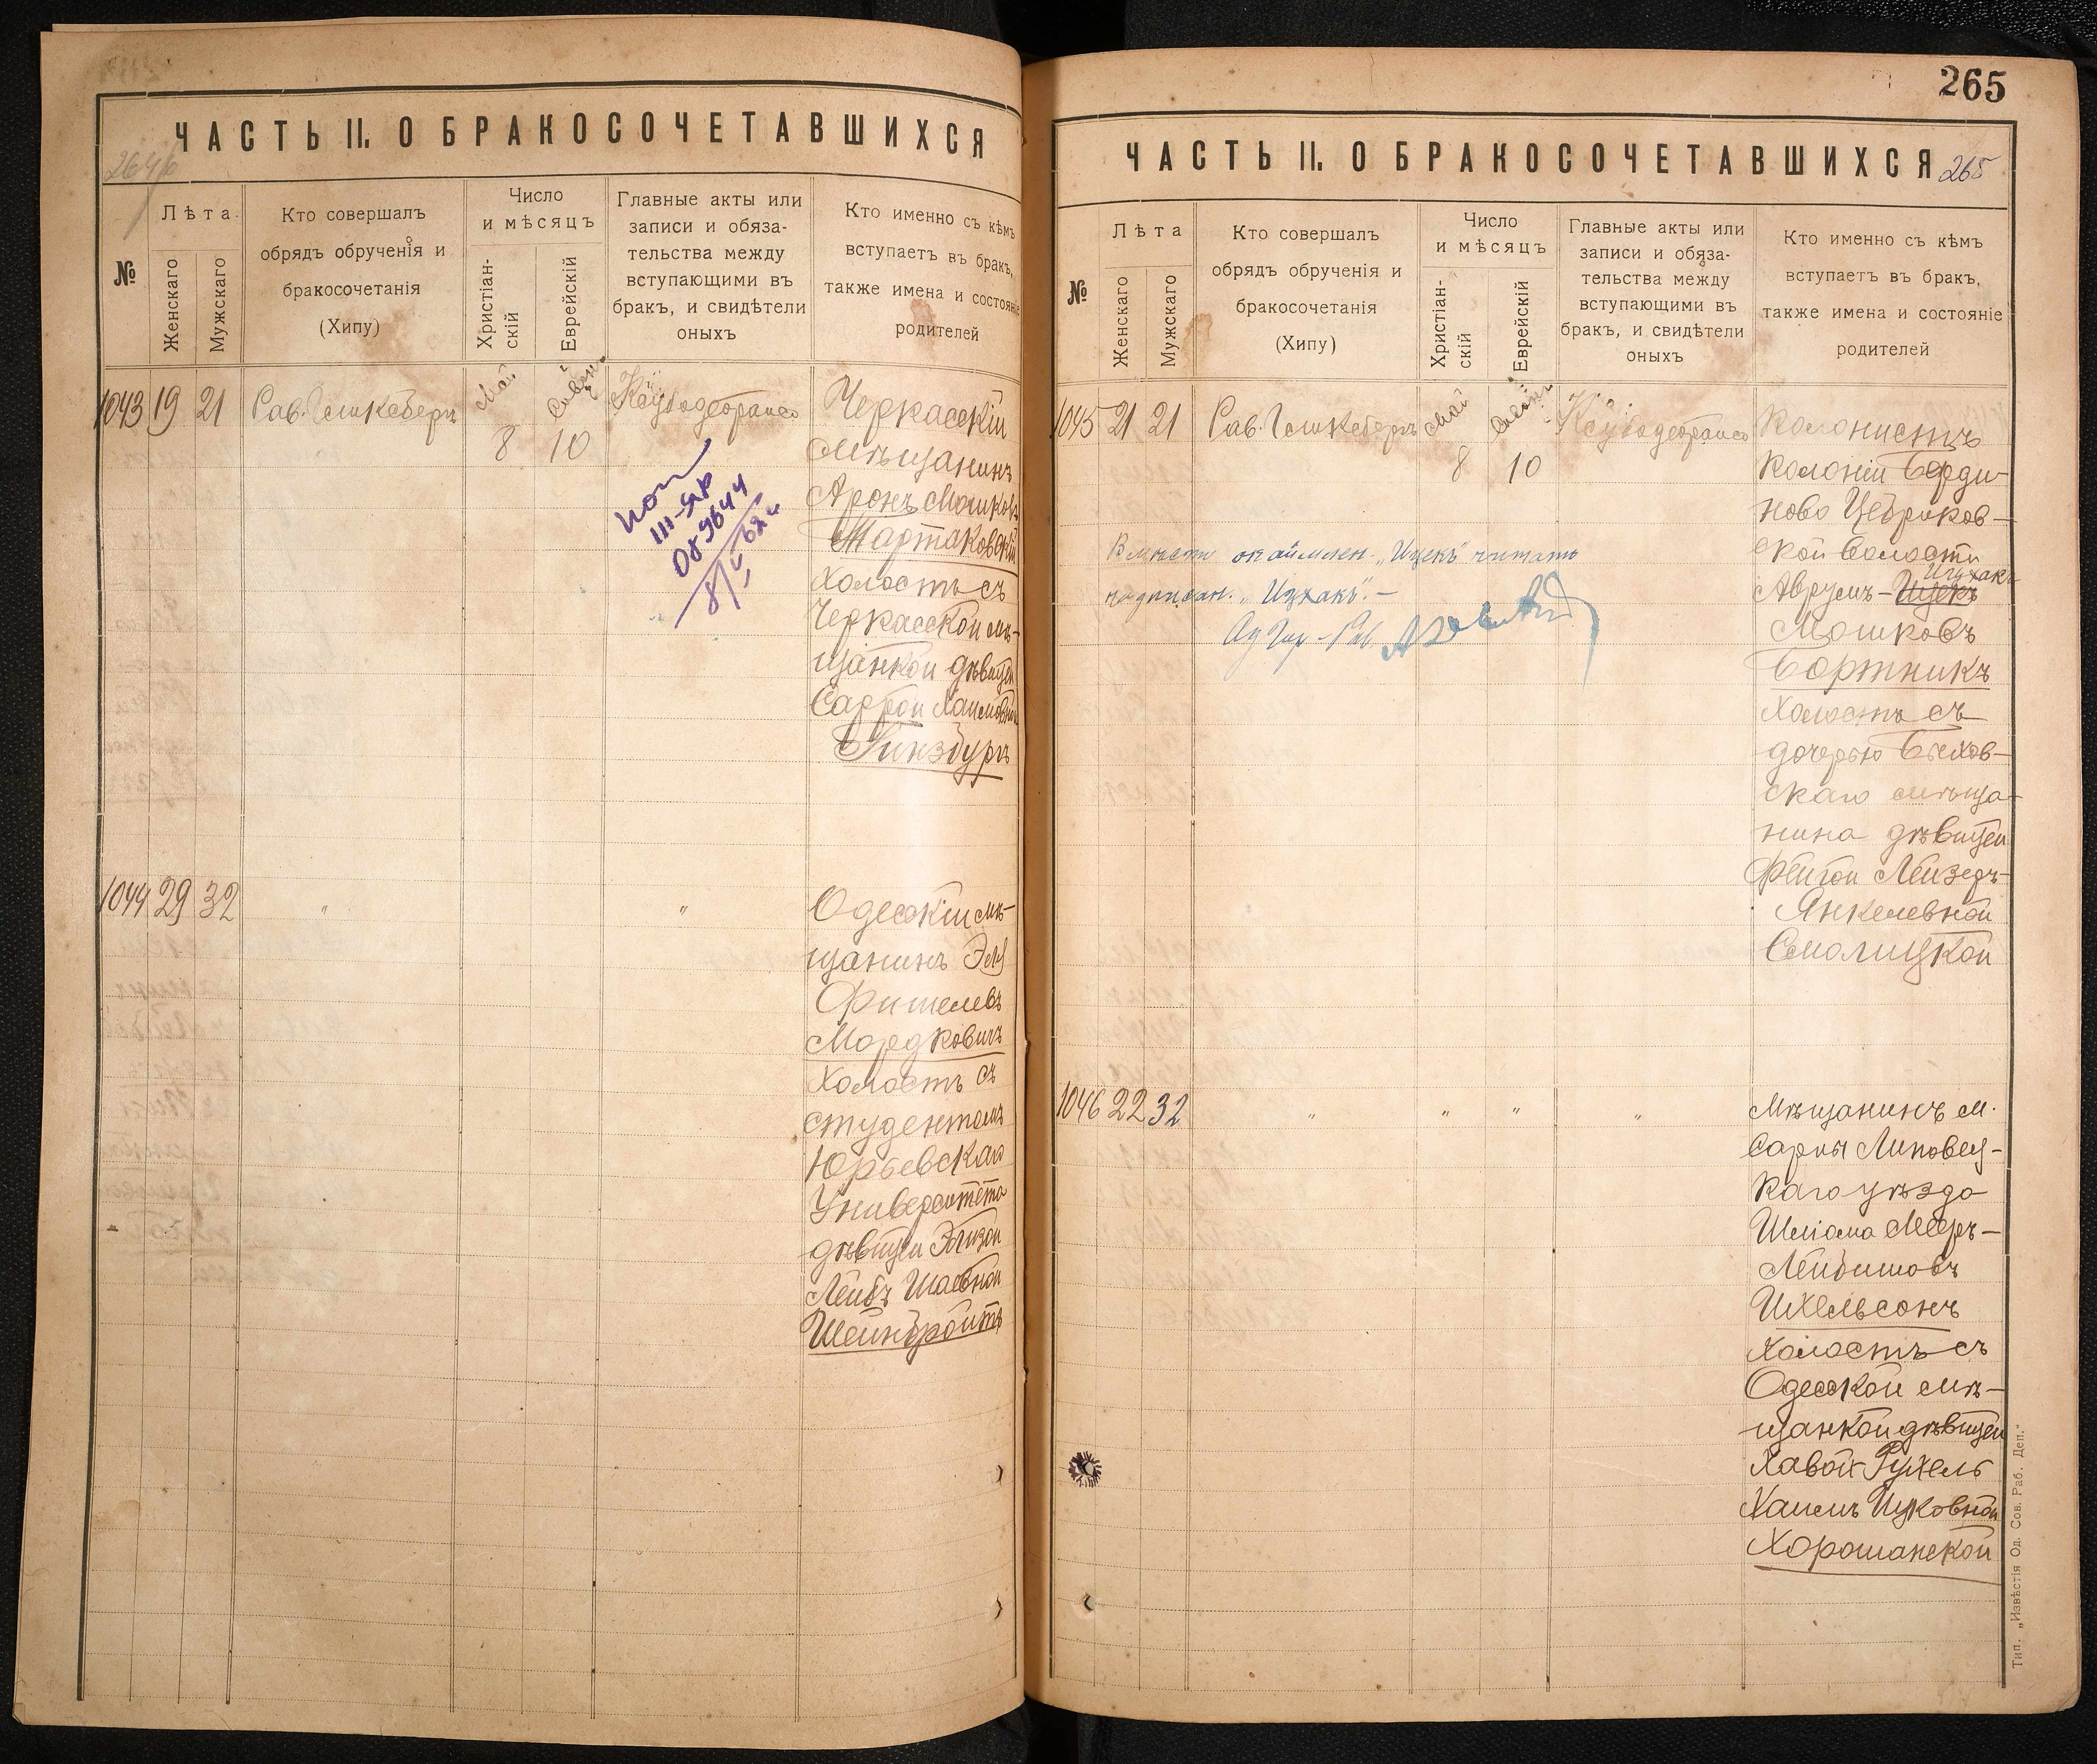 ЧАСТЬ II. О БРАКОСОЧЕТАВШИХСЯ
№
Лѣта
Женскаго
Мужскаго
Кто совершалъ
обрядъ обрученія и
бракосочетанія
(Хипу)
Число
и мѣсяцъ
Христіан-
скій
Еврейскій
Главные акты или
записи и обяза-
тельства между
вступающими въ
бракъ, и свидѣтели
оныхъ
Кто именно съ кѣмъ
вступаетъ въ бракъ,
также имена и состояніе
родителей
1043 19 21 Рав.
Май
8
Сивон
10
Черкасскій
мѣщанинъ
Аронъ Мошковъ
Тартаковскій
холостъ съ
Черкасской мѣ-
щанкой дѣвицей
Саррой Хаимовной
Гинзбургъ
III-ЯР
089644
1044 29 32 " "
Одесскій мѣ-
щанинъ Эль
Фишелевъ
Мордковичъ
холостъ съ
студенткой
Юрьевскаго
Университета
дѣвицей
Лейбъ Шаевной
265
ЧАСТЬ II. О БРАКОСОЧЕТАВШИХСЯ
265
№
Лѣта
Женскаго
Мужскаго
Кто совершалъ
обрядъ обрученія и
бракосочетанія
(Хипу)
Число
и мѣсяцъ
Христіан-
скій
Еврейскій
Главные акты или
записи и обяза-
тельства между
вступающими въ
бракъ, и свидѣтели
оныхъ
Кто именно съ кѣмъ
вступаетъ въ бракъ,
также имена и состояніе
родителей
1045 21 21 Рав.
Май
8
10
Колонистъ
колоніи
ново Цебриков-
ской волости
Ицхакъ
Аврумъ-Ицекъ
Мошковъ
Бортникъ
холостъ съ
дочерью
скаго мѣща-
нина дѣвицей
Фейгой Лейзеръ-
Янкелевной
Смолицкой
"Ицекъ" читать
надписан. "Ицхакъ".-
1046 22 32 " " " "
Мѣщанинъ м.
Сарны Липовец-
каго уѣзда
Шліома Мееръ-
Лейбишовъ
Ихельсонъ
холостъ съ
Одесской мѣ-
щанкой дѣвицей
Хавой Рухель
Хаимъ Ицковной
Хорошанской
Тип. „Извѣстія Од. Сов. Раб. Деп."